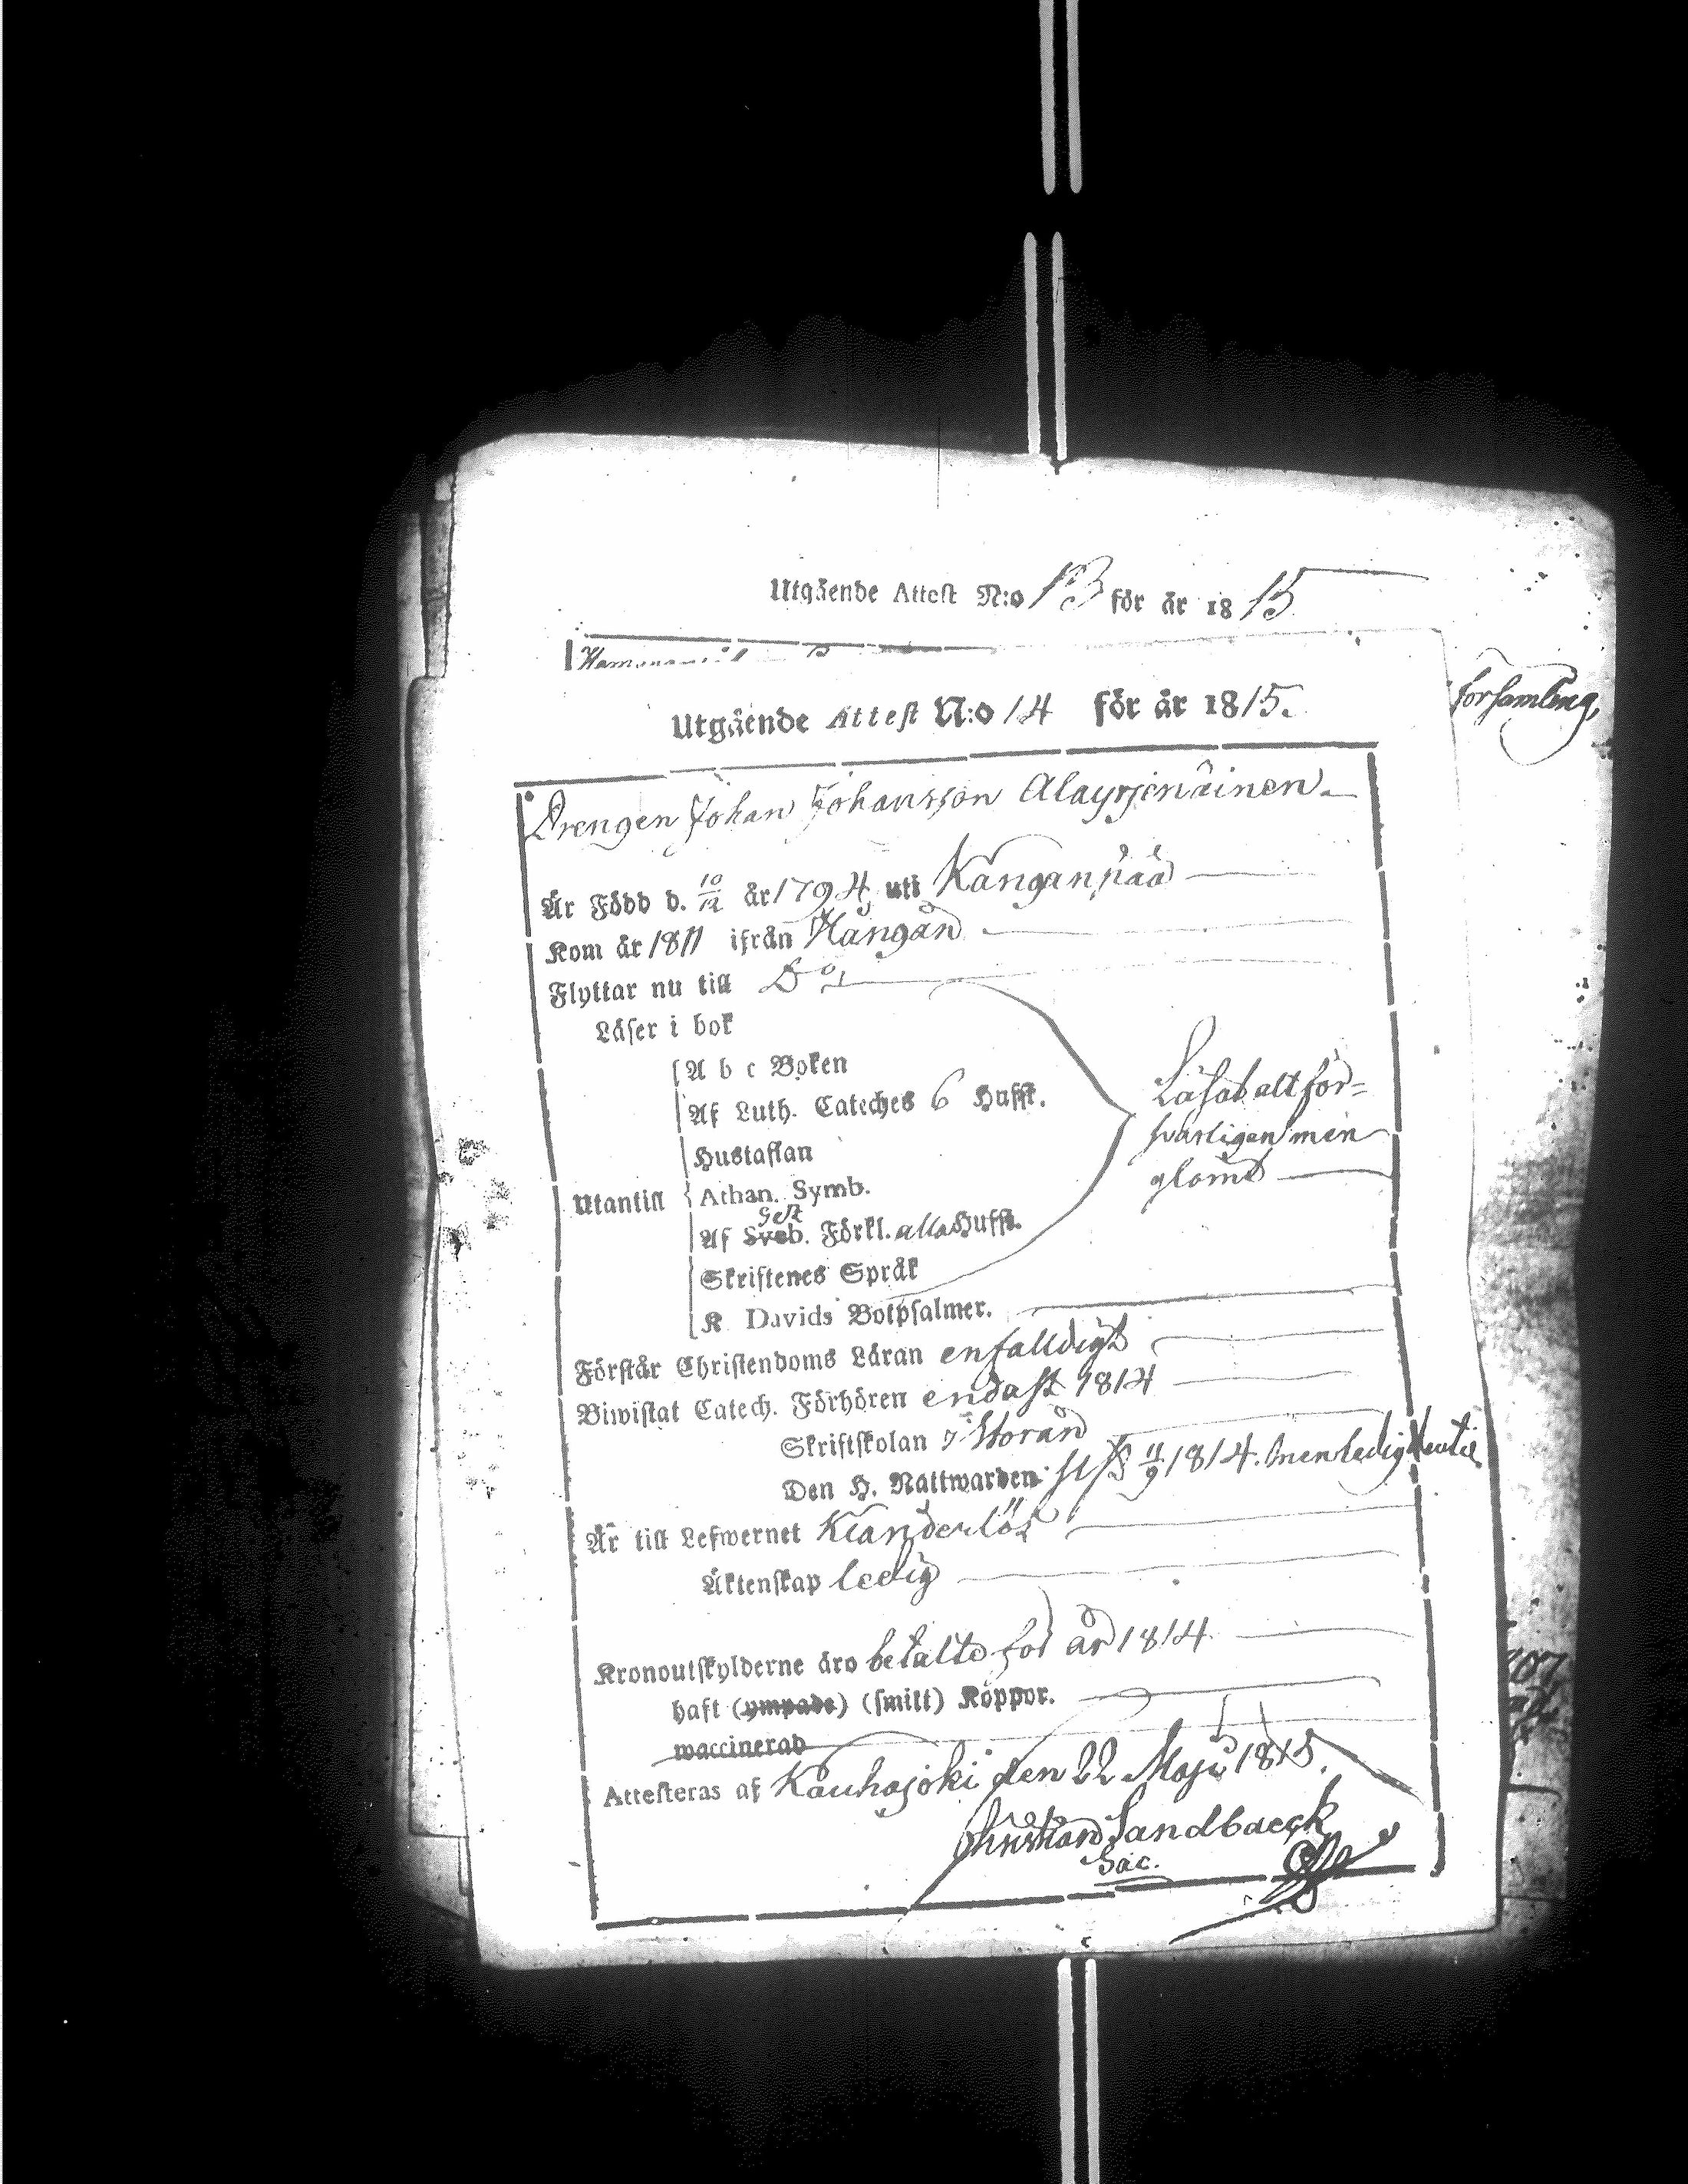 Utgående Attest N:o 13 för år 1815
församling,
Utgående Attest N:o 14 för år 1815.
Drengen Johan Johansson Alayrjenäinen
Är Född d. 10/12 år 1794 uti Kanganpää
Kom år 1811 ifrån Kangan
Flyttar nu till Do
Läser i bok
A b c Boken
Af Luth. Cateches 6 Hufst.
Hustaflan
Utantill Athan. Symb.
Af Sveb. Förkl. alla Hufst.
Skriftenes Språk
K Davids Botpsalmer.
Läsat alt för=
svarligen men
glömt
Förstår Christendoms Läran enfalldigt
Biwistat Catech. Förhören endast 1814
Skriftskolan i Storån
Den H. Nattwarden 11/9 1814. men ledig
Är till Lefwernet Klanderlös
Äktenskap ledig
Kronoutskylderne äro betalte för år 1814
haft (ympade) (smitt) Koppor.
waccinerad
Attesteras af Kauhajoki den 22 Maji 1815.
Christian Sandbaeck
Sac.